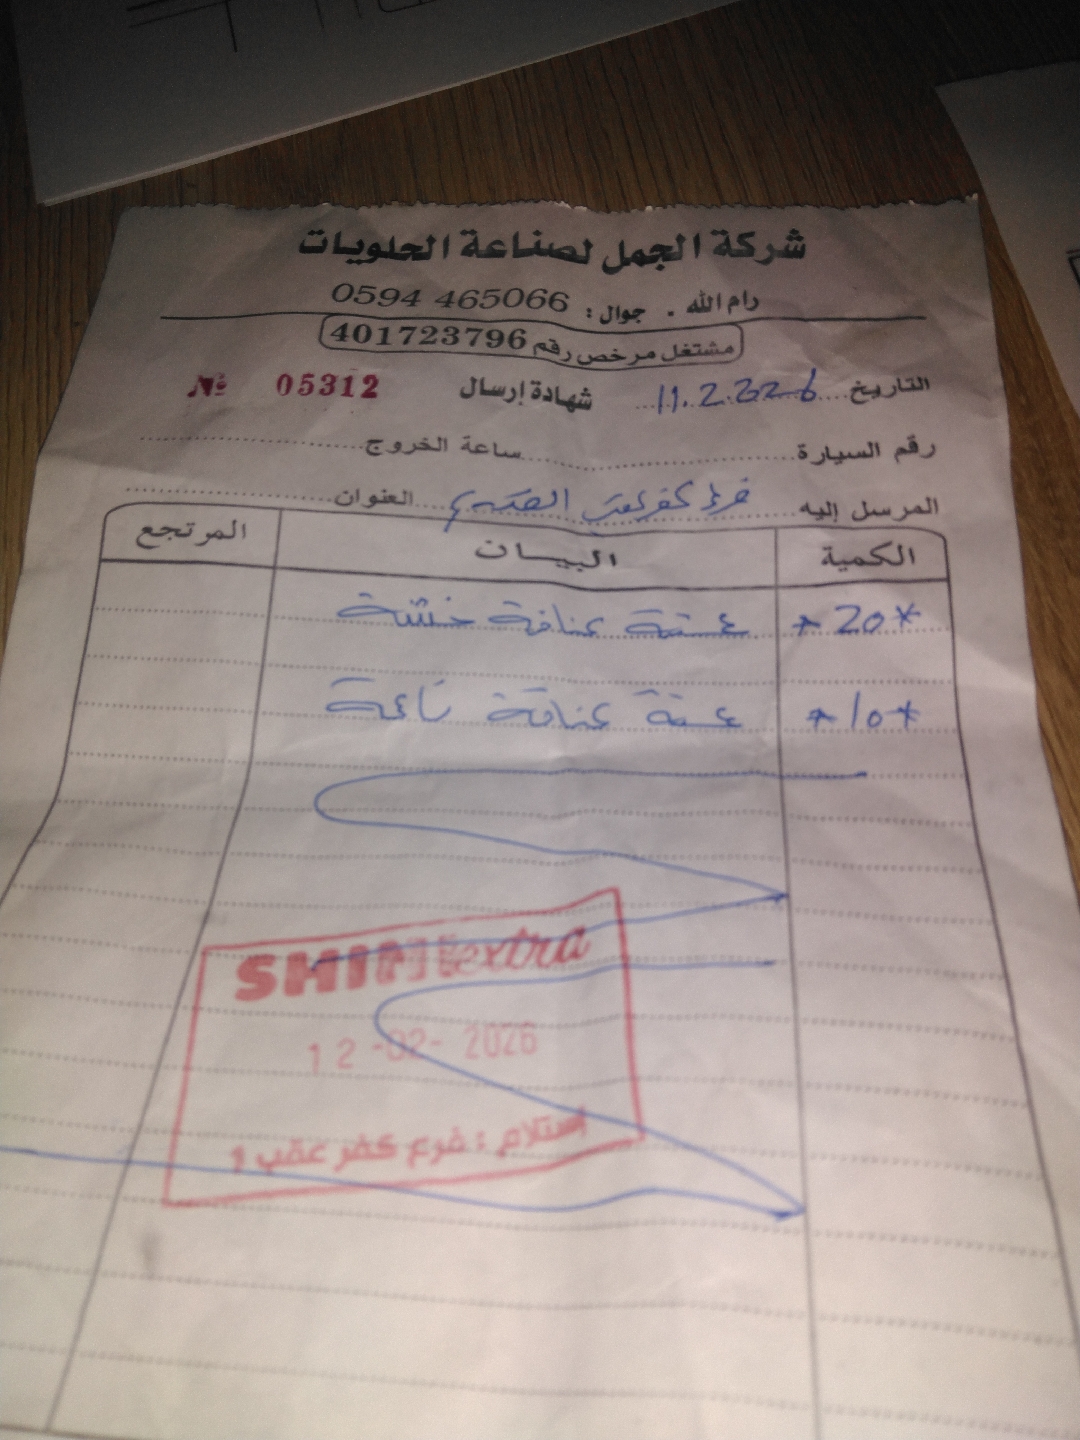 شركة الجمل لصناعة الحلويات
رام الله . جوال : 0594 465066
مشتغل مرخص رقم 401723796
التاريخ 11.2.2026 شهادة إرسال № 05312
رقم السيارة ساعة الخروج
المرسل إليه فرع كفر عقب العنوان
الكمية البيان المرتجع
*20* عنافة خشنة
*10* عنافة ناعمة
SHINI extra
12-02-2026
استلام : فرع كفر عقب 1